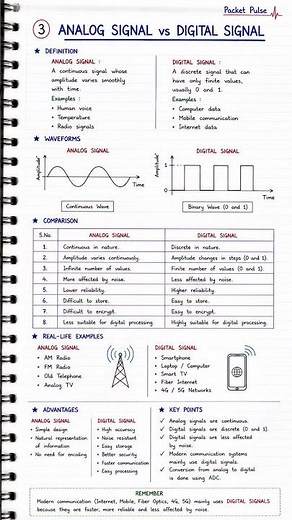 Packet Pulse
3 ANALOG SIGNAL vs DIGITAL SIGNAL
★ DEFINITION
ANALOG SIGNAL :
A continuous signal whose
amplitude varies smoothly
with time.
Examples :
• Human voice
• Temperature
• Radio signals
DIGITAL SIGNAL :
A discrete signal that can
have only finite values,
usually 0 and 1.
Examples :
• Computer data
• Mobile communication
• Internet data
★ WAVEFORMS
ANALOG SIGNAL
Amplitude
Time
Continuous Wave
DIGITAL SIGNAL
Amplitude
1
0
Time
Binary Wave (0 and 1)
★ COMPARISON
S.No. ANALOG SIGNAL DIGITAL SIGNAL
1. Continuous in nature. Discrete in nature.
2. Amplitude varies continuously. Amplitude changes in steps (0 and 1).
3. Infinite number of values. Finite number of values (0 and 1).
4. More affected by noise. Less affected by noise.
5. Lower reliability. Higher reliability.
6. Difficult to store. Easy to store.
7. Difficult to encrypt. Easy to encrypt.
8. Less suitable for digital processing. Highly suitable for digital processing.
★ REAL-LIFE EXAMPLES
ANALOG SIGNAL
• AM Radio
• FM Radio
• Old Telephone
• Analog TV
DIGITAL SIGNAL
• Smartphone
• Laptop / Computer
• Smart TV
• Fiber Internet
• 4G / 5G Networks
★ ADVANTAGES
ANALOG SIGNAL
• Simple design
• Natural representation
of information
• No need for encoding
DIGITAL SIGNAL
• High accuracy
• Noise resistant
• Easy storage
• Better security
• Faster communication
• Easy processing
★ KEY POINTS
✓ Analog signals are continuous.
✓ Digital signals are discrete (0 and 1).
✓ Digital signals are less affected
by noise.
✓ Modern communication systems
mainly use digital signals.
✓ Conversion from analog to digital
is done using ADC.
REMEMBER
Modern communication (Internet, Mobile, Fiber Optics, 4G, 5G) mainly uses DIGITAL SIGNALS
because they are faster, more reliable and less affected by noise.